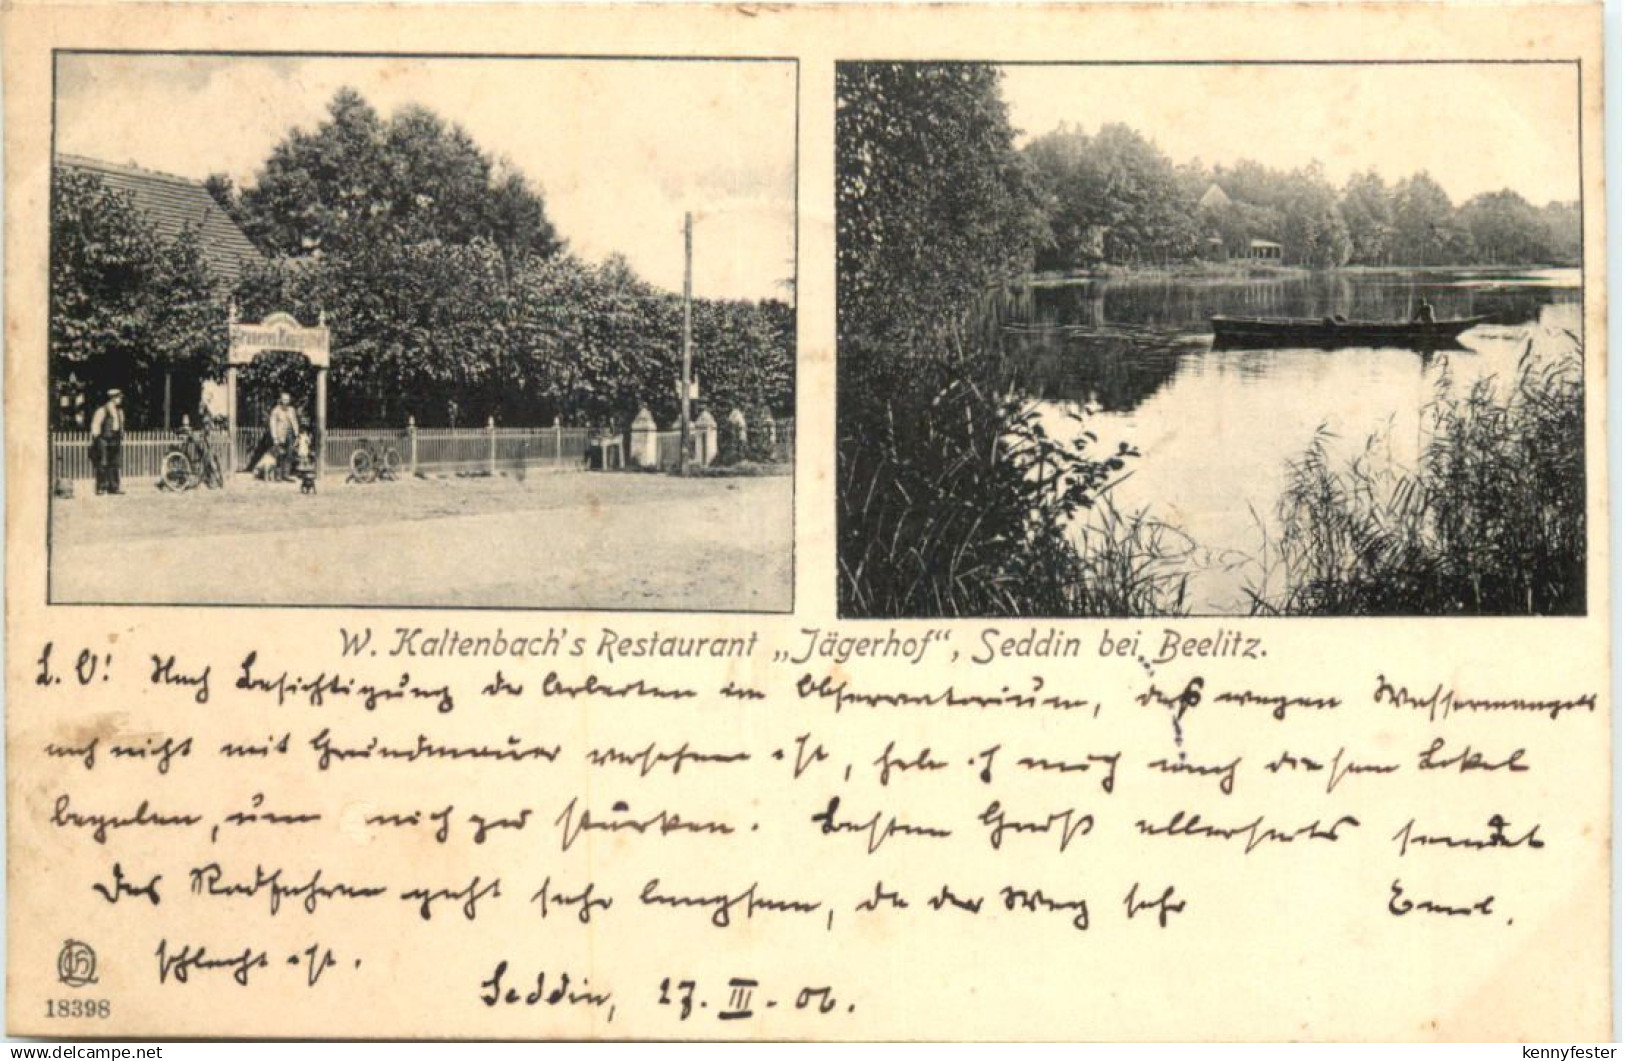 W. Kaltenbach's Restaurant „Jägerhof“, Seddin bei Beelitz.
L. O! Nach Besichtigung der Arbeiten im Observatorium, das wegen Wassermangels
noch nicht mit Grundmauer versehen ist, habe ich mich nach diesem Lokal
begeben, um mich zu stärken. Besten Gruß allerseits sendet
Das Radfahren geht sehr langsam, da der Weg sehr Emil.
schlecht ist.
Seddin, 27. III. 06.
18398
delcampe.net
kennyfester